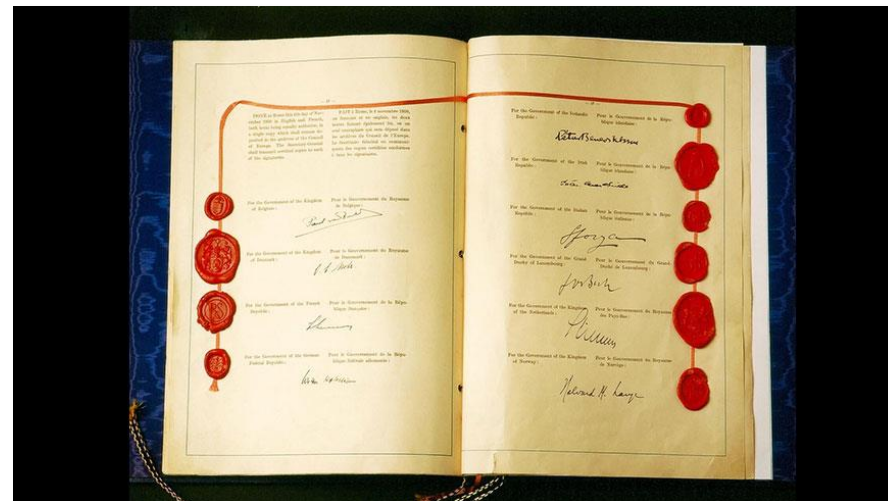 DONE at Rome this 4th day of November 1950 in English and French,
both texts being equally authentic, in
a single copy which shall remain deposited in the archives of the Council
of Europe. The Secretary-General
shall transmit certified copies to each
of the signatories.
FAIT à Rome, le 4 novembre 1950,
en français et en anglais, les deux
textes faisant également foi, en un
seul exemplaire qui sera déposé dans
les archives du Conseil de l'Europe.
Le Secrétaire Général en communiquera des copies certifiées conformes
à tous les signataires.
For the Government of the Kingdom
of Belgium:
Pour le Gouvernement du Royaume
de Belgique:
For the Government of the Kingdom
of Denmark:
Pour le Gouvernement du Royaume
de Danemark:
For the Government of the French
Republic:
Pour le Gouvernement de la République française:
For the Government of the German
Federal Republic:
Pour le Gouvernement de la République fédérale allemande:
For the Government of the Icelandic
Republic:
Pour le Gouvernement de la République islandaise:
For the Government of the Irish
Republic:
Pour le Gouvernement de la République irlandaise:
For the Government of the Italian
Republic:
Pour le Gouvernement de la République italienne:
Sforza
For the Government of the Grand
Duchy of Luxembourg:
Pour le Gouvernement du Grand
Duché de Luxembourg:
For the Government of the Kingdom
of the Netherlands:
Pour le Gouvernement du Royaume
des Pays-Bas:
For the Government of the Kingdom
of Norway:
Pour le Gouvernement du Royaume
de Norvège:
Halvard M. Lange